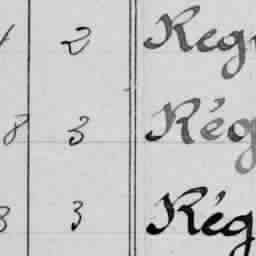 2 Reg
8 3 Rég
3 3 Rég